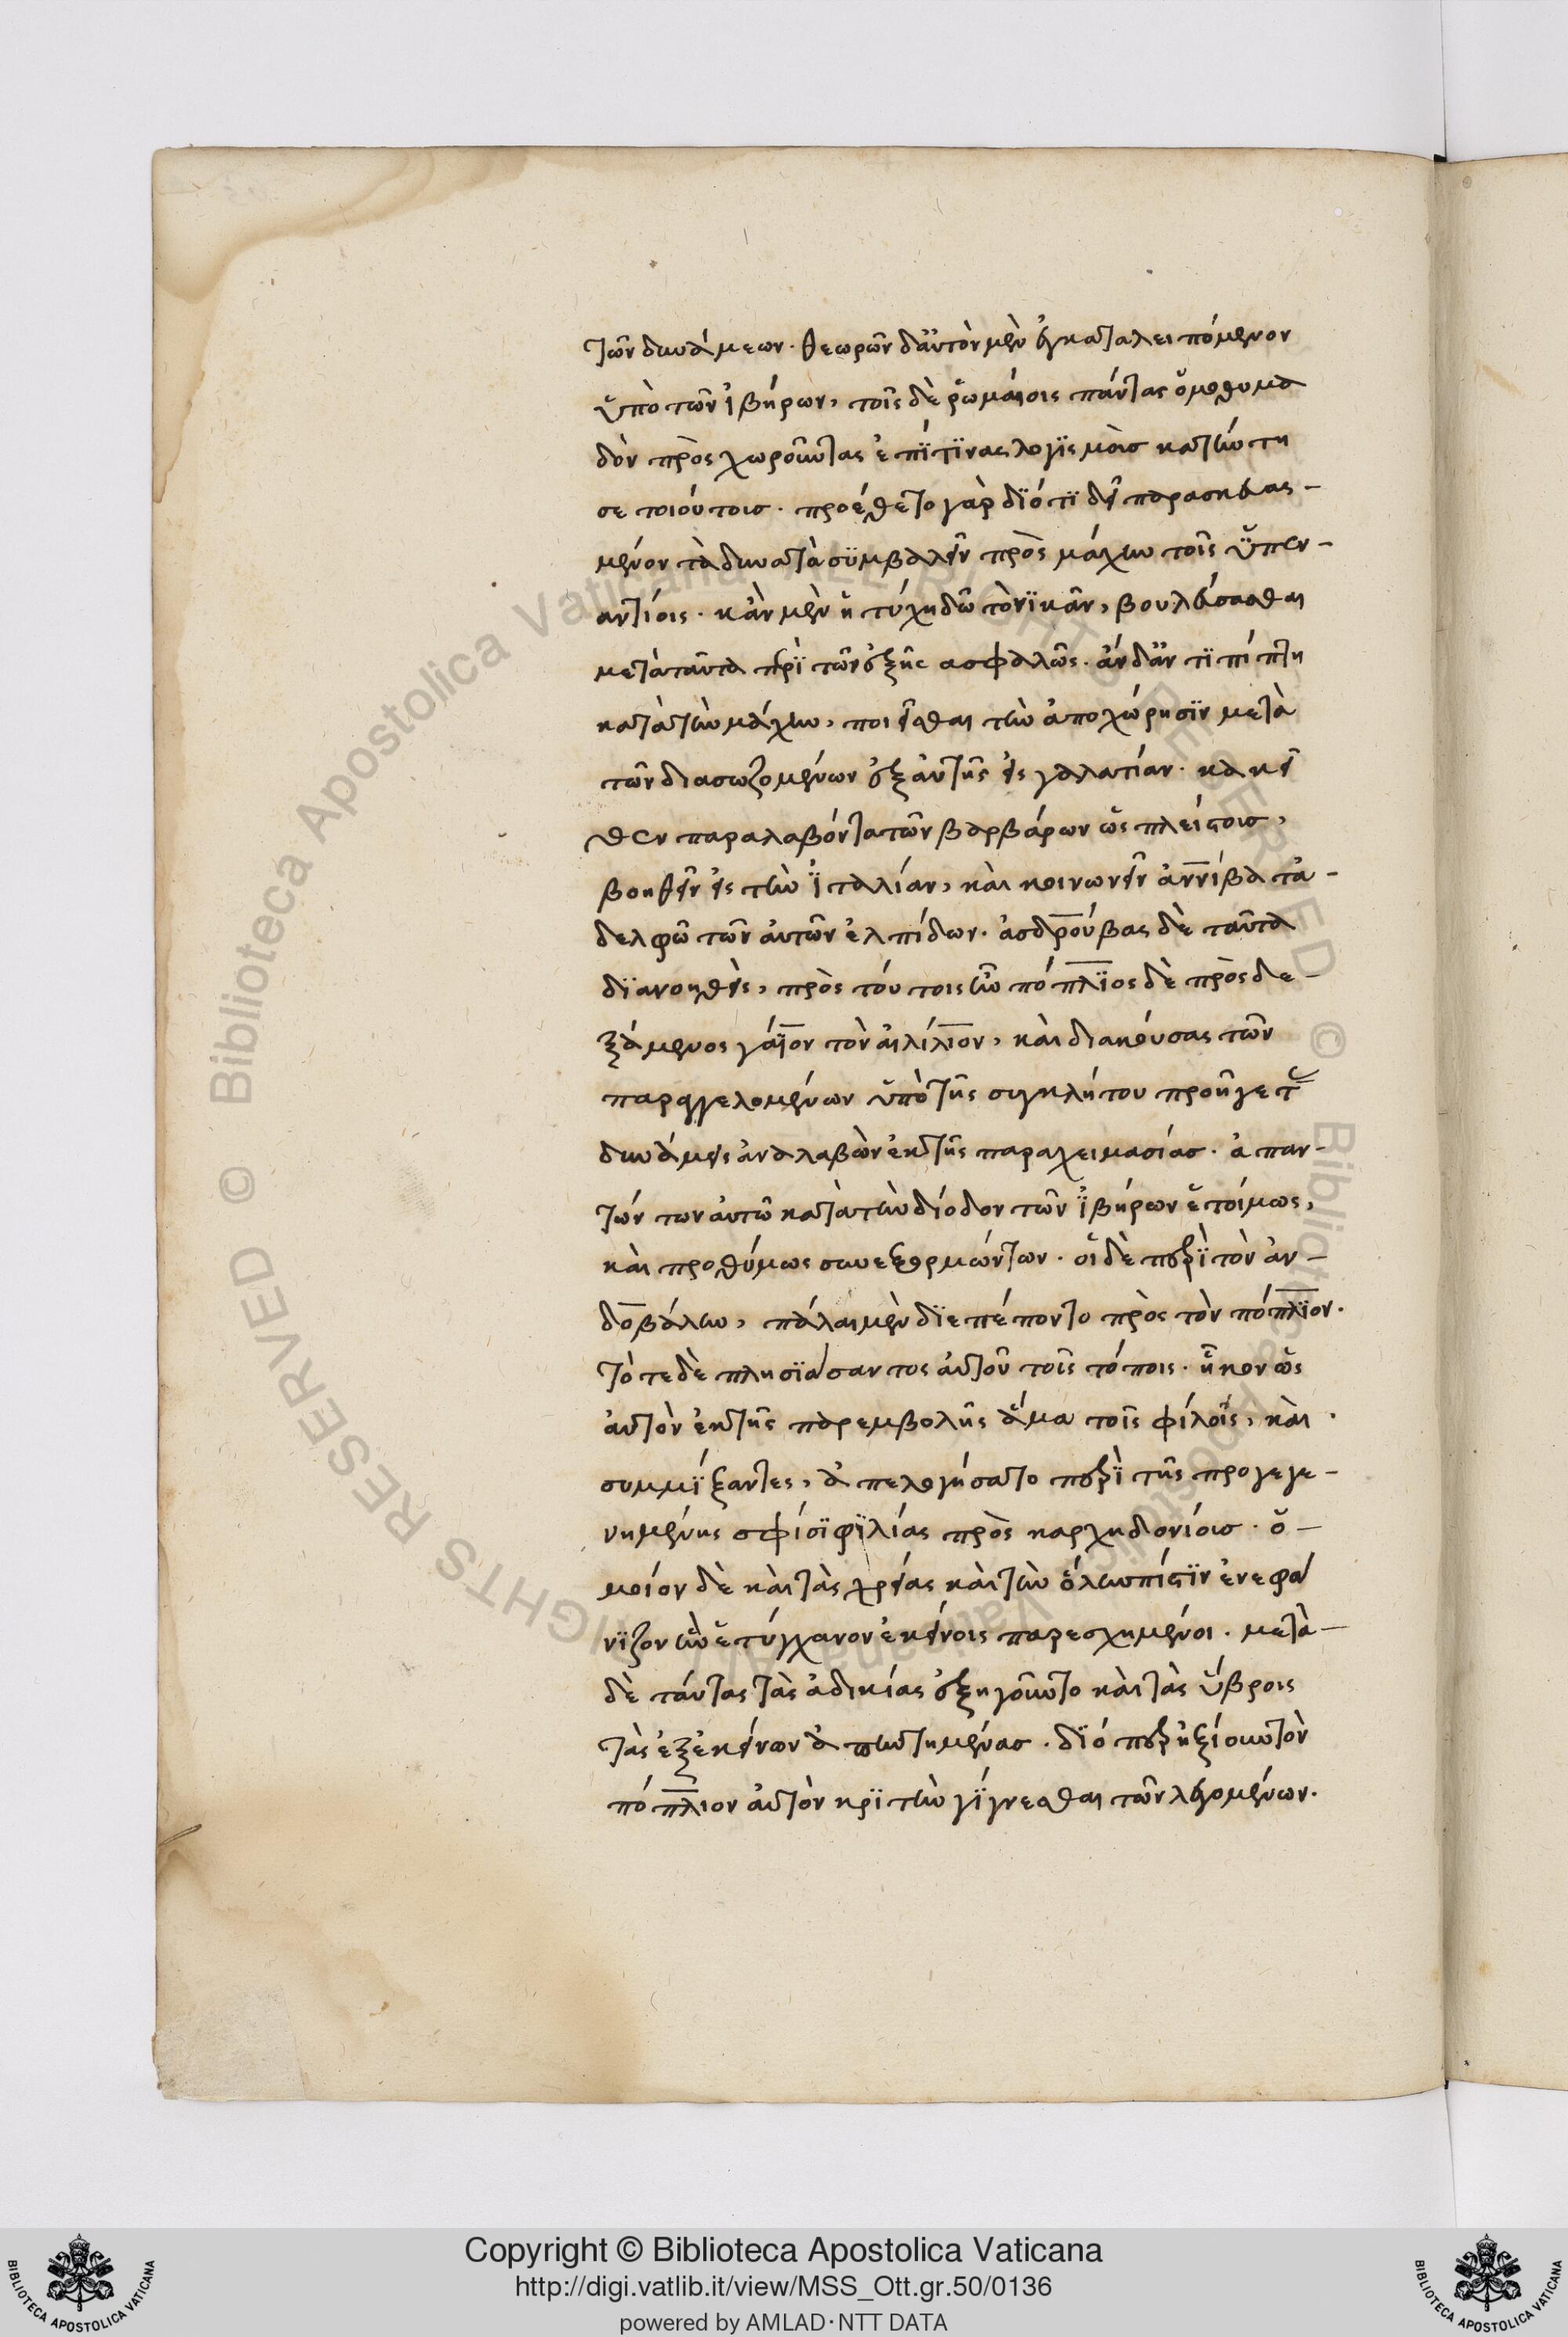 τῶν δυνάμεων. θεωρῶν δ' αὐτὸν μὲν ἐγκαταλειπόμενον
ὑπὸ τῶν ἰβήρων, τοῖς δὲ ῥωμαίοις πάντας ὁμοθυμα
δὸν πρὸς χωροῦντας ἐπί τινας λογισμοὺσ κατήντη
σε τοιούτουσ. προέθετο γὰρ διότι δεῖ παρασκευας-
μένον τὰ δυνατὰ συμβαλεῖν πρὸς μάχην τοῖς ὑπεν-
αντίοις. κἂν μὲν ἡ τύχη δῶ τὸ νικᾶν, βουλεύσασθαι
μετὰ ταῦτα περὶ τῶν ἑξῆς ασφαλῶς. ἂν δ' ἄντι πίπτη
κατὰ τὴν μάχην, ποιεῖσθαι τὴν ἀποχώρησιν μετὰ
τῶν διασωζομένων ἐξ αὐτῆς εἰς γαλατίαν. κακεῖ
θεν παραλαβόντα τῶν βαρβάρων ὡς πλείστουσ,
βοηθεῖν εἰς τὴν ἰταλίαν, καὶ κοινωνεῖν ἀννίβα τἀ-
δελφῶ τῶν αὐτῶν ἐλπίδων. ἀσδρούβας δὲ ταῦτα
διανοηθεὶς, πρὸς τούτοις ἦν πόπλιος δὲ πρὸς δε-
ξάμενος γάϊον τὸν αιλίλιον, καὶ διακούσας τῶν
παραγγελομένων ὑπὸ τῆς συγκλήτου προῆγε τ
δυνάμεις ἀναλαβὼν ἐκ τῆς παραχειμασίασ. ἀπαν-
τών των αὐτῶ κατὰ τὴν δίοδον τῶν ἰβήρων ἑτοίμως,
καὶ προθύμως συνεξορμώντων. οἱ δὲ περὶ τὸν ἀν-
δοβάλην, πάλαι μὲν διεπέποντο πρὸς τὸν πόπλιον.
τότε δὲ πλησιάσαντος αὐτοῦ τοῖς τόποις. ἧκον ὡς
αὐτὸν ἐκ τῆς παρεμβολῆς ἅμα τοῖς φίλοις, καὶ
συμμίξαντες, ἀπελογήσατο περὶ τῆς προγεγε-
νημένης σφίσι φιλίας πρὸς καρχηδονίουσ. ὁ-
μοίον δὲ καὶ τὰς χρείας καὶ τὴν ὅλην πίστιν ἐνεφά
νιζον ἣν ἐτύγχανον ἐκείνοις παρεσχημένοι. μετὰ-
δὲ ταύτας τὰς ἀδικίας ἐξηγοῦντο καὶ τὰς ὕβροις
τὰς ἐξ ἐκείνων ἀπηντημένασ. διόπερ ἠξίουν τὸν
πόπλιον αὐτὸν κριτὴν γίγνεσθαι τῶν λεγομένων.
Copyright © Biblioteca Apostolica Vaticana
http://digi.vatlib.it/view/MSS_Ott.gr.50/0136
powered by AMLAD·NTT DATA